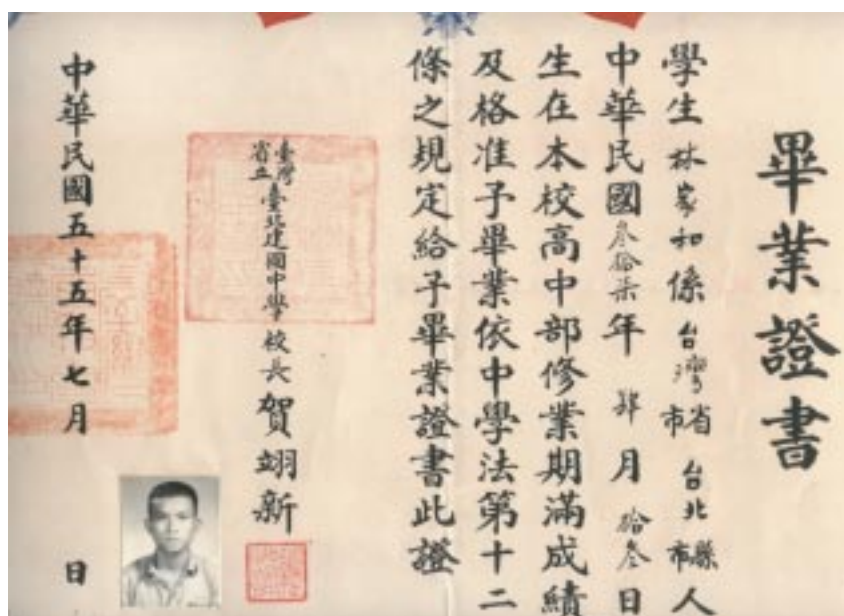 畢業證書
學生林家和係台灣省市台北縣市人
中華民國叁拾柒年肆月拾叁日
生在本校高中部修業期滿成績
及格准予畢業依中學法第十二
條之規定給予畢業證書此證
臺灣省立臺北建國中學校長賀翊新
中華民國五十五年七月 日